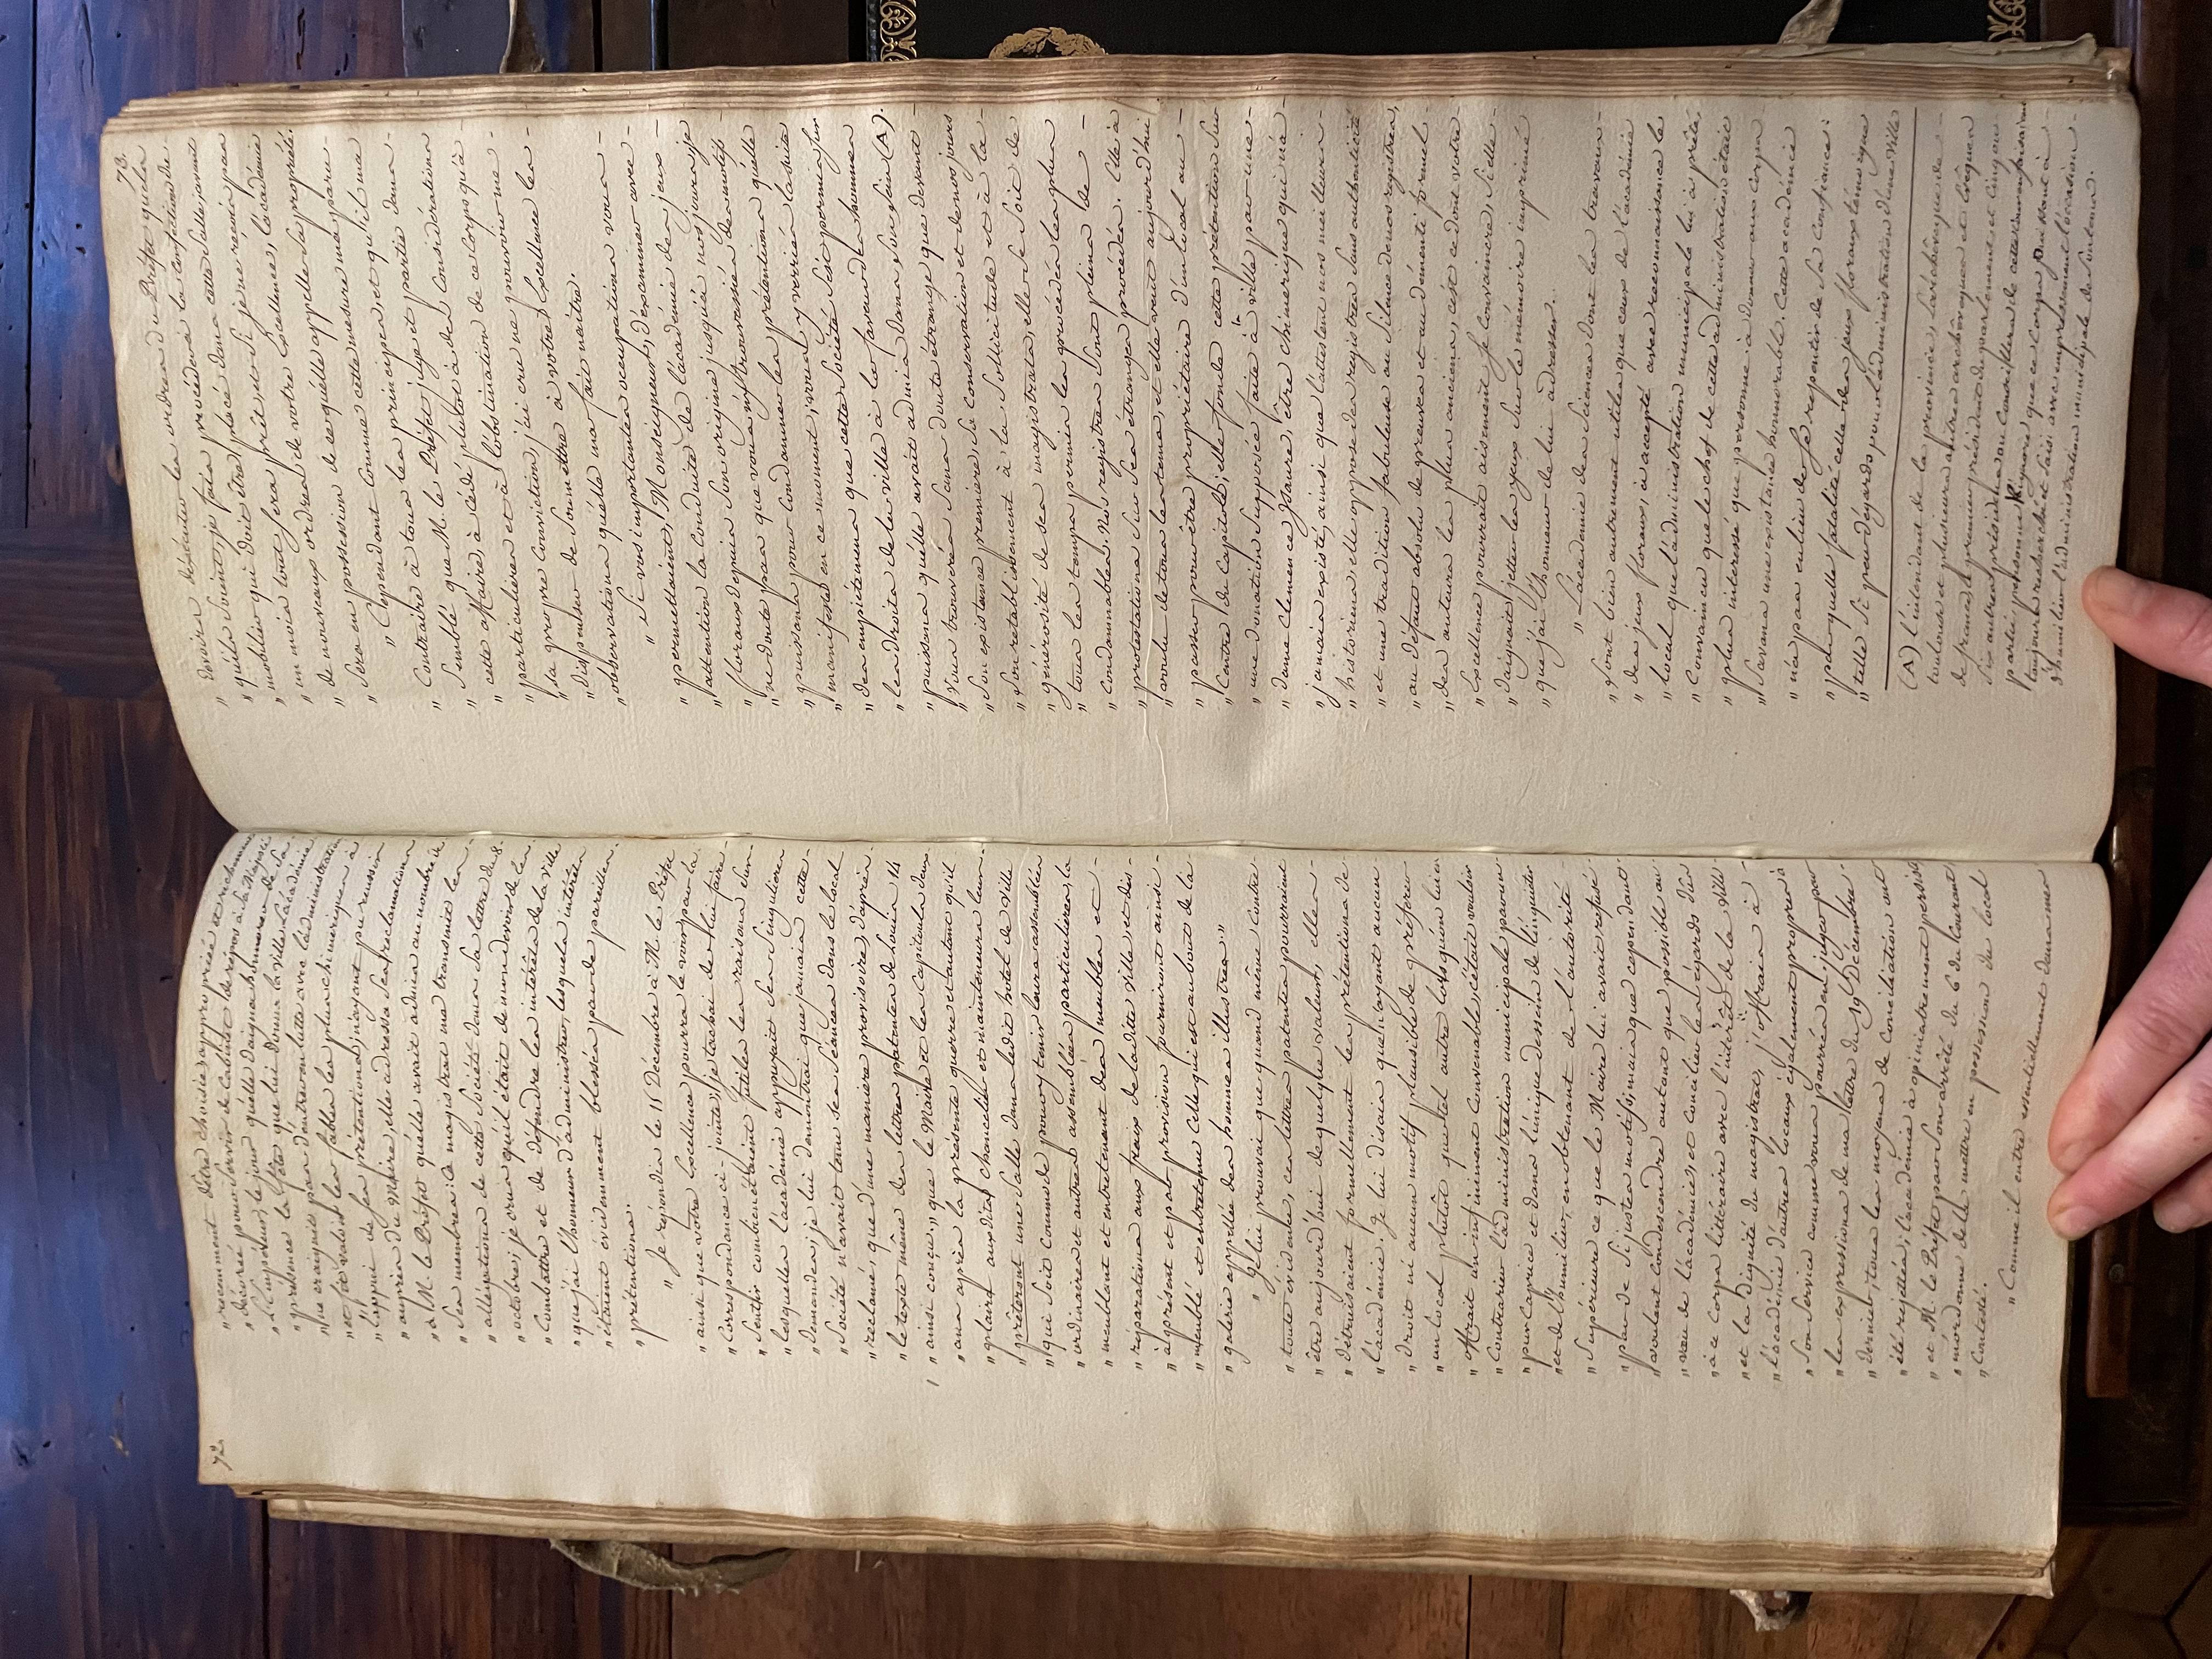 72.
" recemment d'être choisie, appropriée et richement
" décorée pour servir de Cabinet de repos à sa Majesté
" L'Empereur, le jour qu'elle daigna honorer de sa
" présence la fête que lui donna la ville. L'académie
" ne craignit pas d'entrer en lutte avec l'administration
" et fit valoir les fables les plus chimeriques à
" l'appui de ses prétentions; n'ayant pu reussir
" auprès du Maire, elle adressa sa reclamation
" à M. le Préfet qu'elle avait admis au nombre de
" ses membres: ce magistrat me transmit les
" allégations de cette Société dans sa lettre du 8.
" octobre; je crus qu'il était de mon devoir de les
" Combattre et de défendre les intérêts de la ville
" que j'ai l'honneur d'administrer, lesquels intérêts
" étaient evidemment blessés par de pareilles
" prétentions.
" Je répondis le 15 Décembre à M. le Préfet
" ainsi que votre Excellence pourra le voir par la
" Correspondance ci-jointe, je tachai de lui faire
" Sentir combien étaient futiles les raisons sur
" lesquelles l'académie appuyait ses singulieres
" demandes; je lui demontrai que jamais cette
" Société n'avait tenu ses séances dans le local
" reclamé, que d'une manière provisoire, d'après
" le texte même des lettres patentes de Louis 14
" ainsi conçu: " que le Maire et les Capitouls deux
" ans après la présente guerre et autant qu'il
" plaira auxdits chancelier et mainteneurs leur
" prêteront une Salle dans ledit hotel de Ville
" qui soit Commode pour y tenir leurs assemblées
" ordinaires et autres assemblées particulieres, la
" meublant et entretenant des meubles et
" réparations aux frais de ladite ville et dès
" à présent et par provision fourniront ainsi
" meublé et entretenu celle qui est au bout de la
" galerie appellée des hommes illustres."
" Je lui prouvai que quand même contre
" toute évidence, ces lettres patentes pourraient
" être aujourd'hui de quelque valeur, elles
" détruisaient formellement les prétentions de
" l'académie. Je lui disais que n'ayant aucun
" droit ni aucun motif plausible de préférer
" un local plutôt que tel autre lorsqu'on lui en
" offrait un infiniment Convenable, c'était vouloir
" Contrarier l'administration municipale par un
" pur Caprice et dans l'unique dessein de l'inquiéter
" et de l'humilier, en obtenant de l'autorité
" Supérieure ce que le Maire lui avait refusé
" par de si justes motifs; mais que cependant
" voulant Condescendre autant que possible au
" vœu de l'académie, et concilier les égards dûs
" à ce corps littéraire avec l'intérêt de la ville
" et la Dignité du magistrat, j'offrais à
" l'académie d'autres locaux également propres à
" son Service comme vous pourrés en juger par
" les expressions de ma lettre du 19 Décembre
" dernier; tous les moyens de Conciliation ont
" été rejettés; l'académie a opiniatrement persisté
" et M. le Préfet par son arrêté du 6 du Courant
" m'ordonne de la mettre en possession du local
" Contesté.
" Comme il entre essentiellement dans mes
73.
" devoirs d'exécuter les ordres d'un Préfet quels
" qu'ils soient, je fais procéder à la confection du
" mobilier qui doit être placé dans cette Salle; avant
" un mois tout sera prêt, et si je ne recevés pas
" de nouveaux ordres de votre Excellence, l'académie
" sera en possession de ce qu'elle appelle sa propriété.
" Cependant comme cette mesure me parait
" Contraire à tous les principes, et qu'il me
" semble que M. le Préfet, juge et partie dans
" cette affaire, a cédé plutôt à des Considérations
" particulieres et à l'obstination de ce Corps, qu'à
" sa propre Conviction, j'ai cru ne pouvoir me
" Dispenser de Soumettre à votre Excellence les
" observations qu'elle m'a fait naitre.
" Si vos importantes occupations vous
" permettaient, Monseigneur, d'examiner avec
" attention la Conduite de l'académie des jeux
" floraux depuis son origine jusqu'à nos jours, je
" ne doute pas que vous n'y trouvassiés des motifs
" puissans pour Condamner les prétentions qu'elle
" manifeste en ce moment; vous y verriés la suite
" des empietemens que cette Société s'est permis sur
" les droits de la ville à la faveur des hommes
" puissans qu'elle avait admis dans son sein (A).
" Vous trouverés sans doute étrange que devant
" son existence premiere, sa conservation et de nos jours
" son retablissement à la Sollicitude et à la
" générosité de ses magistrats, elle se soit de
" tous les temps permis les procédés les plus
" condamnables. Nos registres sont pleins de
" protestations sur ses étranges procédés. Elle a
" voulu de tous les temps, et elle veut aujourd'hui
" passer pour être propriétaire d'un local au
" Centre du Capitole; elle fonde cette prétention sur
" une donation supposée faite à la ville par une
" Dame Clemence Isaure, être chimerique qui n'a
" jamais existé, ainsi que l'attestent nos meilleurs
" historiens; elle oppose des registres sans authenticité
" et une tradition fabuleuse au silence de nos registres,
" au défaut absolu de preuves et au démenti formel
" des auteurs les plus anciens; c'est ce dont votre
" Excellence pourrait aisement se convaincre, si elle
" Daignait jetter les yeux sur le mémoire imprimé
" que j'ai l'honneur de lui adresser.
" L'académie des Sciences dont les travaux
" sont bien autrement utiles que ceux de l'académie
" des jeux floraux, a accepté avec reconnaissance le
" local que l'administration municipale lui a prêté
" Convaincue que le chef de cette administration était
" plus interessé que personne à donner aux corps
" savans une existence honorable. Cette académie
" n'eut pas eu lieu de se repentir de sa Confiance:
" par quelle fatalité celle des jeux floraux temoigne
" t'elle si peu d'égards pour l'administration d'une ville
(A) l'intendant de la province, l'archevêque de
toulouse et plusieurs autres archevêques et évêques
de france, le premier président du parlement et cinq ou
six autres présidens ou Conseillers de cette cour faisaient
partie, personne n'ignore que ce Corps puissant à
toujours recherché et saisi avec empressement l'occasion
d'humilier l'administration municipale de toulouse.